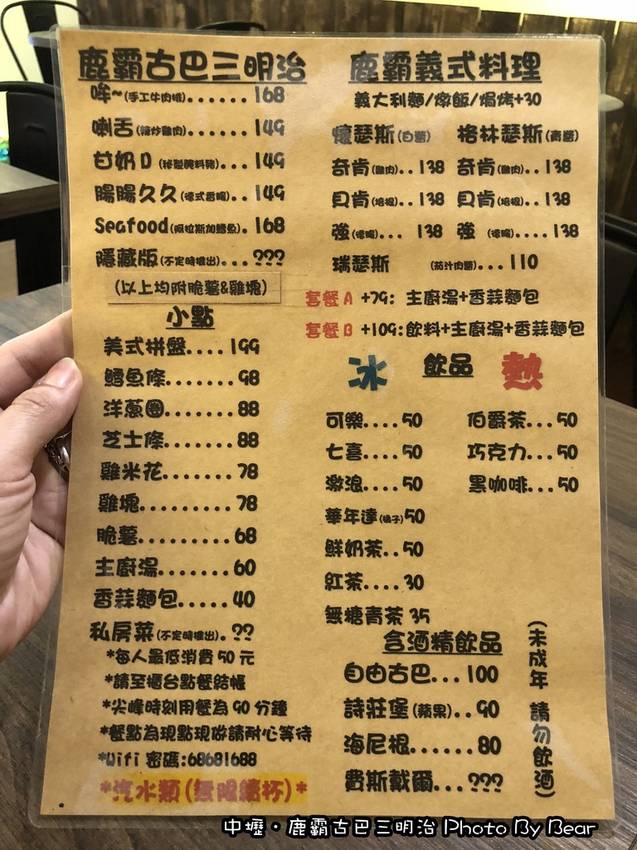 鹿霸古巴三明治
哞~(手工牛肉排)......168
喇舌(辣炒雞肉)......149
甘奶D(秘製醃料豬)...149
腸腸久久(德式香腸)..149
Seafood(阿拉斯加鱈魚).168
隱藏版(不定時推出)...???
(以上均附脆薯&雞塊)
小點
美式拼盤....199
鱈魚條.......98
洋蔥圈.......88
芝士條.......88
雞米花.......78
雞塊.........78
脆薯.........68
主廚湯.......60
香蒜麵包.....40
私房菜(不定時推出)。??
*每人最低消費50元
*請至櫃台點餐結帳
*尖峰時刻用餐為90分鐘
*餐點為現點現做請耐心等待
*Wifi 密碼:68681688
*汽水類(無限續杯)*
鹿霸義式料理
義大利麵/燉飯/焗烤+30
懷瑟斯(白醬) 格林瑟斯(青醬)
奇肯(雞肉)..138 奇肯(雞肉)..138
貝肯(培根)..138 貝肯(培根)..138
強(德腸)... 138 強 (德腸)....138
瑞瑟斯 (茄汁肉醬)...110
套餐A +79: 主廚湯+香蒜麵包
套餐B +109:飲料+主廚湯+香蒜麵包
冰 飲品 熱
可樂....50 伯爵茶...50
七喜....50 巧克力...50
激浪....50 黑咖啡...50
華年達(橘子)50
鮮奶茶..50
紅茶....30
無糖青茶 35
含酒精飲品
自由古巴...100
詩莊堡(蘋果)..90
海尼根......80
費斯戴爾...???
(未成年 請勿飲酒)
中壢·鹿霸古巴三明治 Photo By Bear